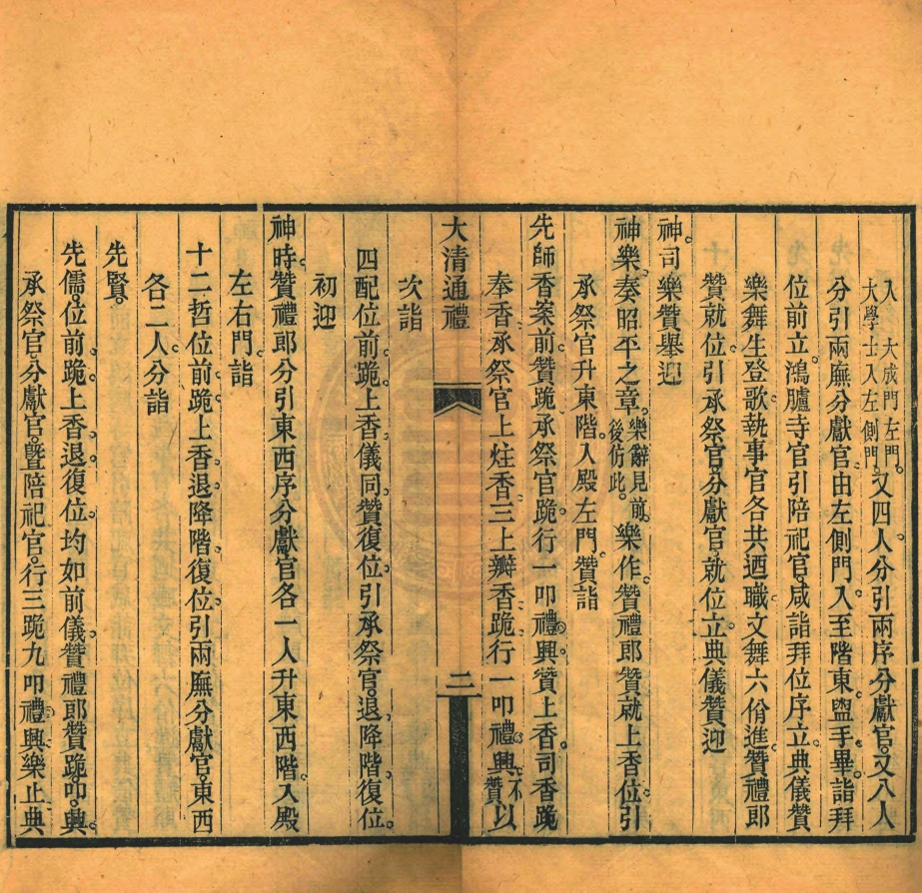 入　大成門左門。又四人分引兩序分獻官。又八人
大學士入左側門。
分引兩廡分獻官由左側門入至階東盥手畢詣拜
位前立。鴻臚寺官引陪祀官。咸詣拜位序立。典儀贊
樂舞生登歌。執事官各共迺職。文舞六佾進。贊禮郎
贊就位。引承祭官。分獻官。就位立。典儀贊迎
神。司樂贊舉迎
神樂。奏昭平之章。樂辭見前。後仿此。樂作。贊禮郎贊就上香位。引
承祭官升東階。入殿左門。贊詣
先師香案前。贊跪。承祭官跪。行一叩禮。興。贊上香。司香跪
奉香。承祭官上炷香。三上瓣香。跪。行一叩禮。興。不贊。以
大清通禮
二
次詣
四配位前。跪。上香。儀同。贊復位。引承祭官。退。降階。復位
初迎
神時。贊禮郎分引東西序分獻官各一人升東西階。入殿
左右門。詣
十二哲位前。跪。上香。退。降階。復位。引兩廡分獻官。東西
各二人。分詣
先賢。
先儒。位前。跪。上香。退。復位。均如前儀。贊禮郎贊跪。叩。興。
承祭官。分獻官。暨陪祀官。行三跪九叩禮。興。樂止。典